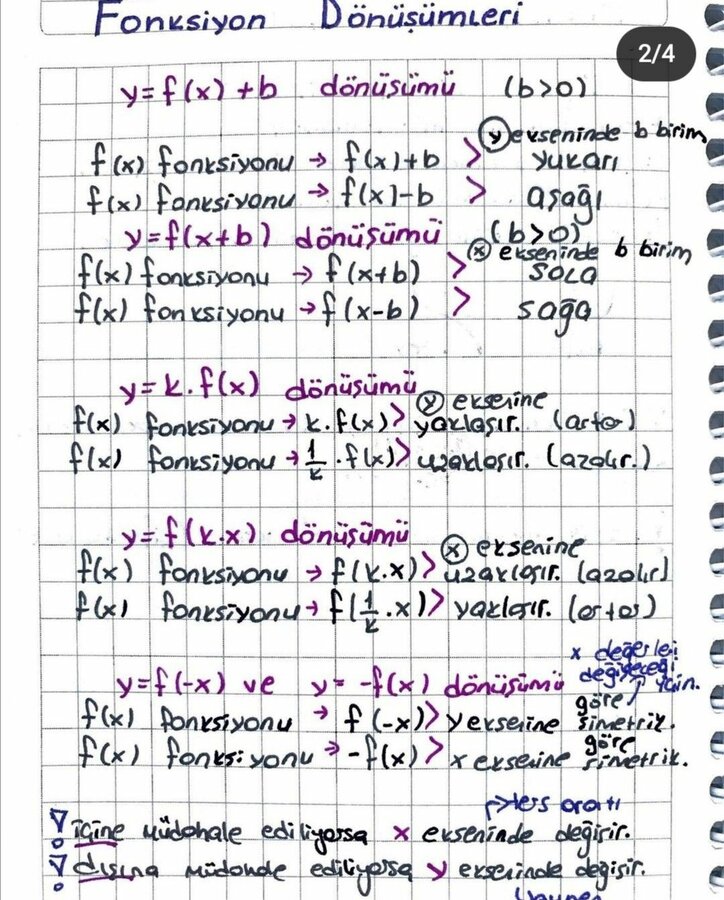 Fonksiyon Dönüşümleri
2/4
y=f(x)+b dönüşümü (b>0)
y ekseninde b birim
f(x) fonksiyonu → f(x)+b > yukarı
f(x) fonksiyonu → f(x)-b > aşağı
y=f(x+b) dönüşümü (b>0)
x ekseninde b birim
f(x) fonksiyonu → f(x+b) > SOLA
f(x) fonksiyonu → f(x-b) > sağa
y=k.f(x) dönüşümü
y eksenine
f(x) fonksiyonu → k.f(x)> yaklaşır. (artar)
f(x) fonksiyonu → 1/k .f(x)> uzaklaşır. (azalır.)
y=f(k.x) dönüşümü
x eksenine
f(x) fonksiyonu → f(k.x)> uzaklaşır. (azalır)
f(x) fonksiyonu → f(1/k .x)> yaklaşır. (artar)
x değerleri
değişeceği
için.
y=f(-x) ve y=-f(x) dönüşümü
f(x) fonksiyonu → f(-x)> y eksenine göre simetrik.
f(x) fonksiyonu → -f(x)> x eksenine göre simetrik.
→ters orantı
! içine müdahale ediliyorsa x ekseninde değişir.
! dışına müdahale ediliyorsa y ekseninde değişir.